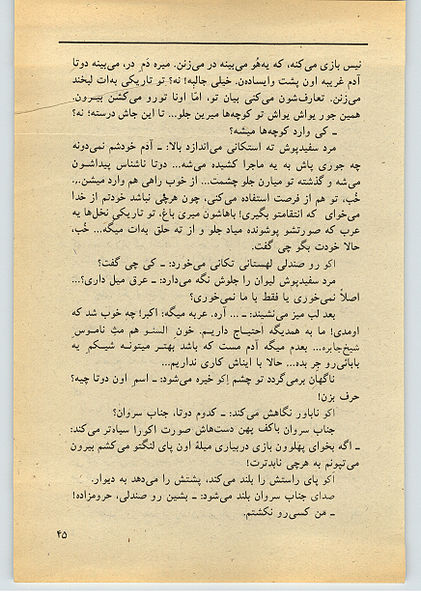 نیس بازی می‌کنه، که یه‌هُو می‌بینه در می‌زنن. میره دَم در، می‌بینه دوتا
آدم غریبه اون پشت وایساده‌ن. خیلی جالبه! نه؟ تو تاریکی به‌ات لبخند
می‌زنن. تعارف‌شون می‌کنی بیان تو، امّا اونا تورو می‌کشن بیـرون.
همین جور یواش یواش تو کوچه‌ها میرین جلو... تا این جاش درسته؛ نه؟
ـ کی وارد کوچه‌ها میشه؟
مرد سفیدپوش ته استکانی می‌اندازد بالا: ـ آدم خودشم نمی‌دونه
چه جوری پاش به یه ماجرا کشیده می‌شه... دوتا ناشناس پیداشـون
می‌شه و گذشته تو میارن جلو چشمت... از خوب راهی هم وارد میشن.،.
خُب، تو هم از فرصت استفاده می‌کنی، چون هرچی نباشد خودتم از خدا
می‌خوای که انتقامتو بگیری! باهاشون میری باغ، تو تاریکی نخل‌ها یه
عرب که صورتشو پوشونده میاد جلو و از ته حلق به‌ات میگه... خُب،
حالا خودت بگو چی گفت.
اکو رو صندلی لهستانی تکانی می‌خورد: ـ کی چی گفت؟
مرد سفیدپوش لیوان را جلوش نگه می‌دارد: ـ عرق میل داری؟...
اصلاً نمی‌خوری یا فقط با ما نمی‌خوری؟
بعد لب میز می‌نشیند: ـ ... آره. عربه میگه: اکبر! چه خوب شد که
اومدی! ما به همدیگه احتیـاج داریـم. خون السنـو هم مث نامـوس
شیخ‌جابره... بعدم میگه آدم مست که باشد بهتـر میتونـه شیکـم یه
بابائی‌رو جر بده... حالا با ایناش کاری نداریم...
ناگهان برمی‌گردد تو چشم اِکو خیره می‌شود: ـ اسم اون دوتا چیه؟
حرف بزن!
اکو ناباور نگاهش می‌کند: ـ کدوم دوتا، جناب سروان؟
جناب سروان باکف پهن دست‌هاش صورت اکورا سیاه‌تر می‌کند:
ـ اگه بخوای پهلوون بازی دربیاری میلهٔ اون پای لنگتو می‌کشم بیرون
می‌تپونم به هرچی نابدترت!
اکو پای راستش را بلند می‌کند، پشتش را می‌دهد به دیوار.
صدای جناب سروان بلند می‌شود: ـ بشین رو صندلی، حرومزاده!
ـ مَن کسی‌رو نکشتم.
۴۵